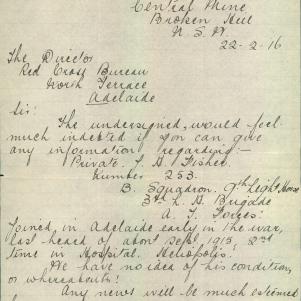 Central Mine
Broken Hill
N. S. W.
22-2-16
The Director
Red Cross Bureau
North Terrace
Adelaide
Sir:
The undersigned, would feel
much indebted if you can give
any information regarding:—
Private. T. H. Fisher.
Number 253.
B. Squadron. 9th Light Horse
3rd L. H. Brigade
A. I. Forces.
Joined, in Adelaide early in the war,
last heard of about Sept. 1915, 2nd
time in Hospital. Heliopolis.
We have no idea of his condition,
or whereabouts!
Any news will be much esteemed